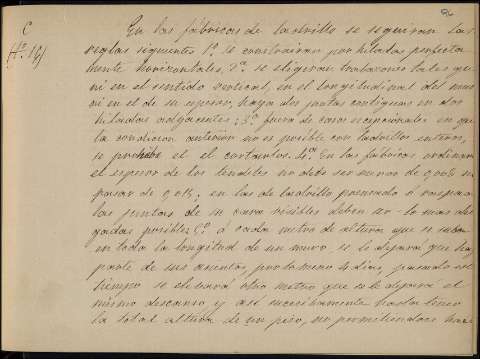 86
C
Nº 14)
En las fábricas de ladrillo se seguirán las
reglas siguientes 1ª. se construirán por hiladas perfecta-
mente horizontales, 2ª. se eligirán trabazones tales que
ni en el sentido vertical, en el longitudinal del muro
ni en el de su espesor, haya dos juntas contiguas en dos
hiladas adyacentes; 3ª. fuera de casos excepcionales en que
la condicion anterior no es posible con ladrillos enteros,
se prohibe el el cortarlos. 4ª. En las fábricas ordinarias
el espesor de los tendeles no debe ser menor de 0,005 ni
pasar de 0,015; en las de ladrillo prensado ó
las juntas de su cara visibles deben ser lo mas del-
gadas posible; 5ª. á cada metro de altura que se suba
en toda la longitud de un muro se le dejará que haga
parte de sus asientos, por lo menos 4 dias, pasando este
tiempo se elevará otro metro que se le dejara el
mismo descanso y así sucesivamente hasta
la total altura de un piso, no permitiendose